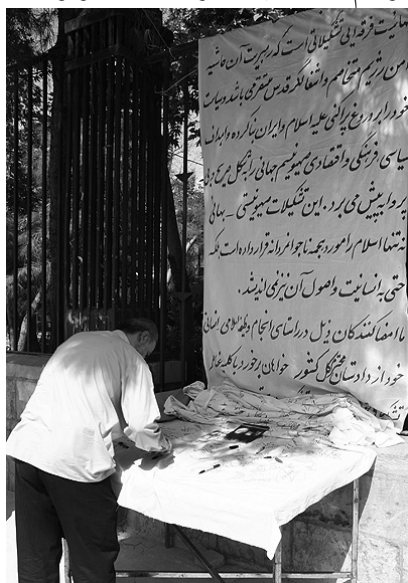 بهائیت فرقه ایی تشکیلاتی است که رهبریت آن در حاشیه
امن رژیم متخاصم و اشغالگر قدس مستقر می باشد و حیات
خود را بر دروغ پراکنی علیه اسلام و ایران بنا کرده و اهداف
سیاسی فرهنگی و اقتصادی صهیونیسم جهانی را
پیش می برد. این تشکیلات صهیونیستی - بهائی
نه تنها اسلام را مورد هجمه ناجوانمردانه قرار داده است بلکه
حتی به انسانیت و اصول آن نیز نمی اندیشد.
ما امضاکنندگان ذیل در راستای انجام وظیفه اسلامی انسانی
خود از دادستان محترم کل کشور خواهان برخورد با کلیه